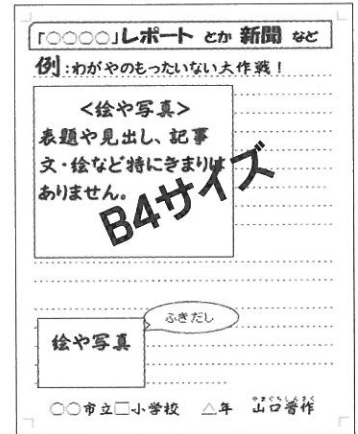 「○○○○」レポート とか 新聞 など
例:わがやのもったいない大作戦!
<絵や写真>
表題や見出し、記事
文・絵など特にきまりは
ありません。
B4サイズ
ふきだし
絵や写真
○○市立□小学校 △年 山口晋作
やまぐちしんさく